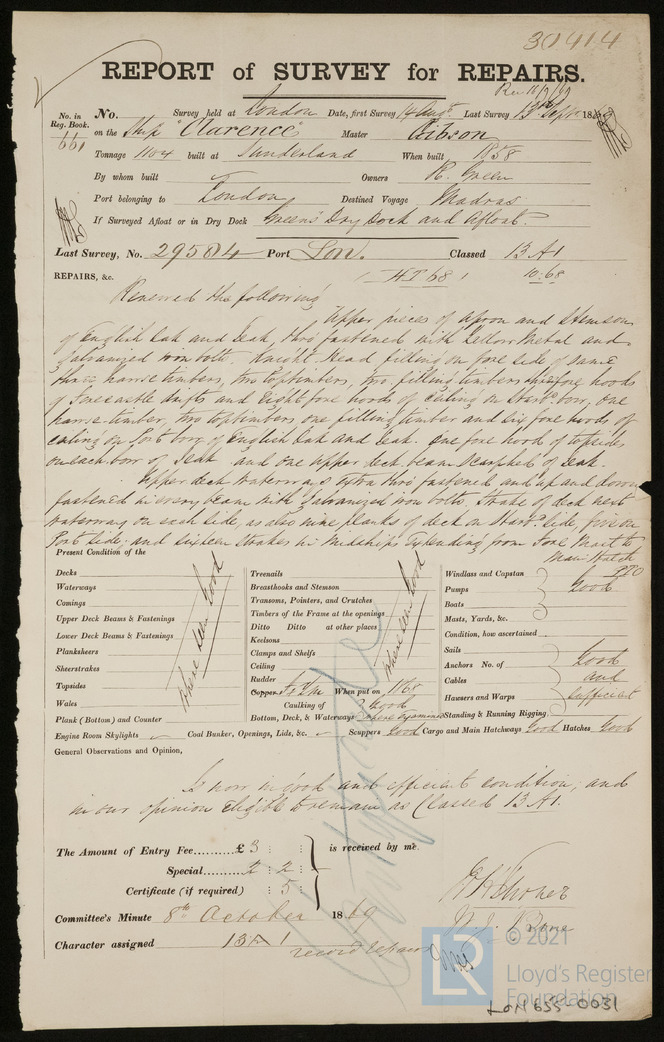 30414
REPORT of SURVEY for REPAIRS.
Rec 11/9/69
No. in Reg. Book. 661
No. Survey held at London Date, first Survey 14 Augt Last Survey 13th Septr 1869
on the Ship "Clarence" Master Gibson
Tonnage 1104 built at Sunderland When built 1858
By whom built Owners R. Green
Port belonging to London Destined Voyage Madras
If Surveyed Afloat or in Dry Dock Greens Dry Dock and Afloat.
Last Survey, No. 29584 Port Lon. Classed 13 A1
REPAIRS, &c. HT 68 10.68
Renewed the following
Upper pieces of apron and Stemson
of English Oak and Teak, thro' fastened with Yellow Metal and
Galvanized iron bolts. Knight Head filling on fore side of same
three hawse timbers, two toptimbers, two filling timbers fore hoods
of Forecastle drifts and Eight fore hoods of Ceiling on Starbd bow, one
hawse timber, two toptimbers one filling timber and six fore hoods of
Ceiling on Port bow of English Oak and Teak. One fore hood of topsides
on each bow of Teak and one upper deck beam Scarphed of Teak.
Upper deck waterways extra thro' fastened and up and down
fastened in every beam with Galvanized iron bolts. Strake of deck next
waterway on each side, as also nine planks of deck on Starbd. side, five on
Port side, and sixteen Strakes in Midships extending from Fore Mast to
Main Hatch
PTO
Present Condition of the
Decks
Waterways
Comings
Upper Deck Beams & Fastenings
Lower Deck Beams & Fastenings
Planksheers
Sheerstrakes
Topsides
Wales
Plank (Bottom) and Counter
where seen Good
Treenails
Breasthooks and Stemson
Transoms, Pointers, and Crutches
Timbers of the Frame at the openings
Ditto Ditto at other places
Keelsons
Clamps and Shelfs
Ceiling
Rudder
where seen Good
Copper When put on 1868
Caulking of Good
Bottom, Deck, & Waterways where examined
Windlass and Capstan
Pumps
Boats
Masts, Yards, &c.
Condition, how ascertained
Good
Sails
Anchors No. of
Cables
Hawsers and Warps
Standing & Running Rigging
Good
and
sufficient
Engine Room Skylights Coal Bunker, Openings, Lids, &c. Scuppers Good Cargo and Main Hatchways Good Hatches Good
General Observations and Opinion,
Is now in good and efficient condition, and
in our opinion Eligible to remain as Classed 13 A1.
The Amount of Entry Fee £3 : : is received by me
Special 2 : 2 :
Certificate (if required) : 5
Committee's Minute 8th October 1869
Character assigned 13 A 1
record repairs
© 2021
LR
Lloyd's Register
Foundation
LON 655-0031